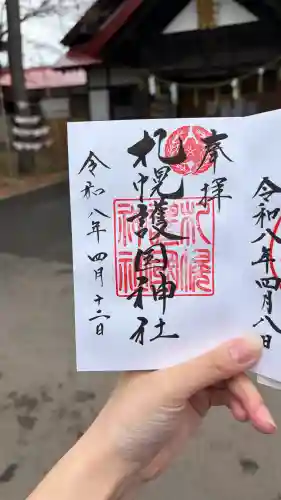 奉拝
札幌護国神社
令和八年四月十二日
令和八年四月八日